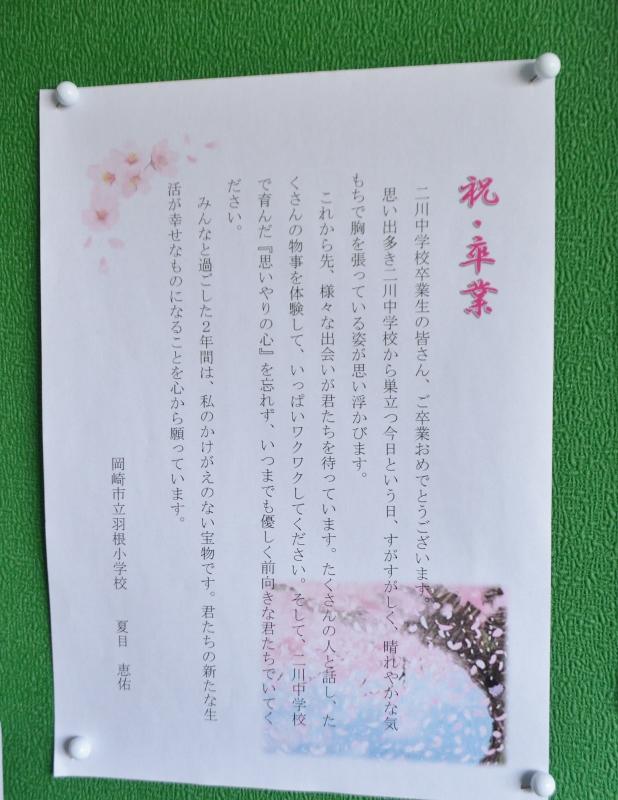 祝・卒業
二川中学校卒業生の皆さん、ご卒業おめでとうございます。
思い出多き二川中学校から巣立つ今日という日、すがすがしく、晴れやかな気
もちで胸を張っている姿が思い浮かびます。
これから先、様々な出会いが君たちを待っています。たくさんの人と話し、た
くさんの物事を体験して、いっぱいワクワクしてください。そして、二川中学校
で育んだ『思いやりの心』を忘れず、いつまでも優しく前向きな君たちでいてく
ださい。
みんなと過ごした2年間は、私のかけがえのない宝物です。君たちの新たな生
活が幸せなものになることを心から願っています。
岡崎市立羽根小学校 夏目 恵佑